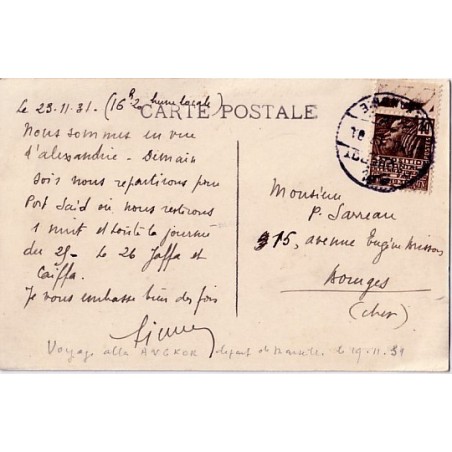 Le 23.11.31 - (16h20 heure locale)
CARTE POSTALE
Nous sommes en vue
d'alexandrie - Demain
soir nous repartirons pour
Port Saïd où nous resterons
1 nuit et toute la journée
du 25 - Le 26 Jaffa et
Caïffa.
Je vous embrasse bien des fois
Monsieur
P. Sarreau
315, avenue Eugène Brisson
Bourges
(Cher)
Voyage aller ANGKOR départ de Marseille le 19.11.31